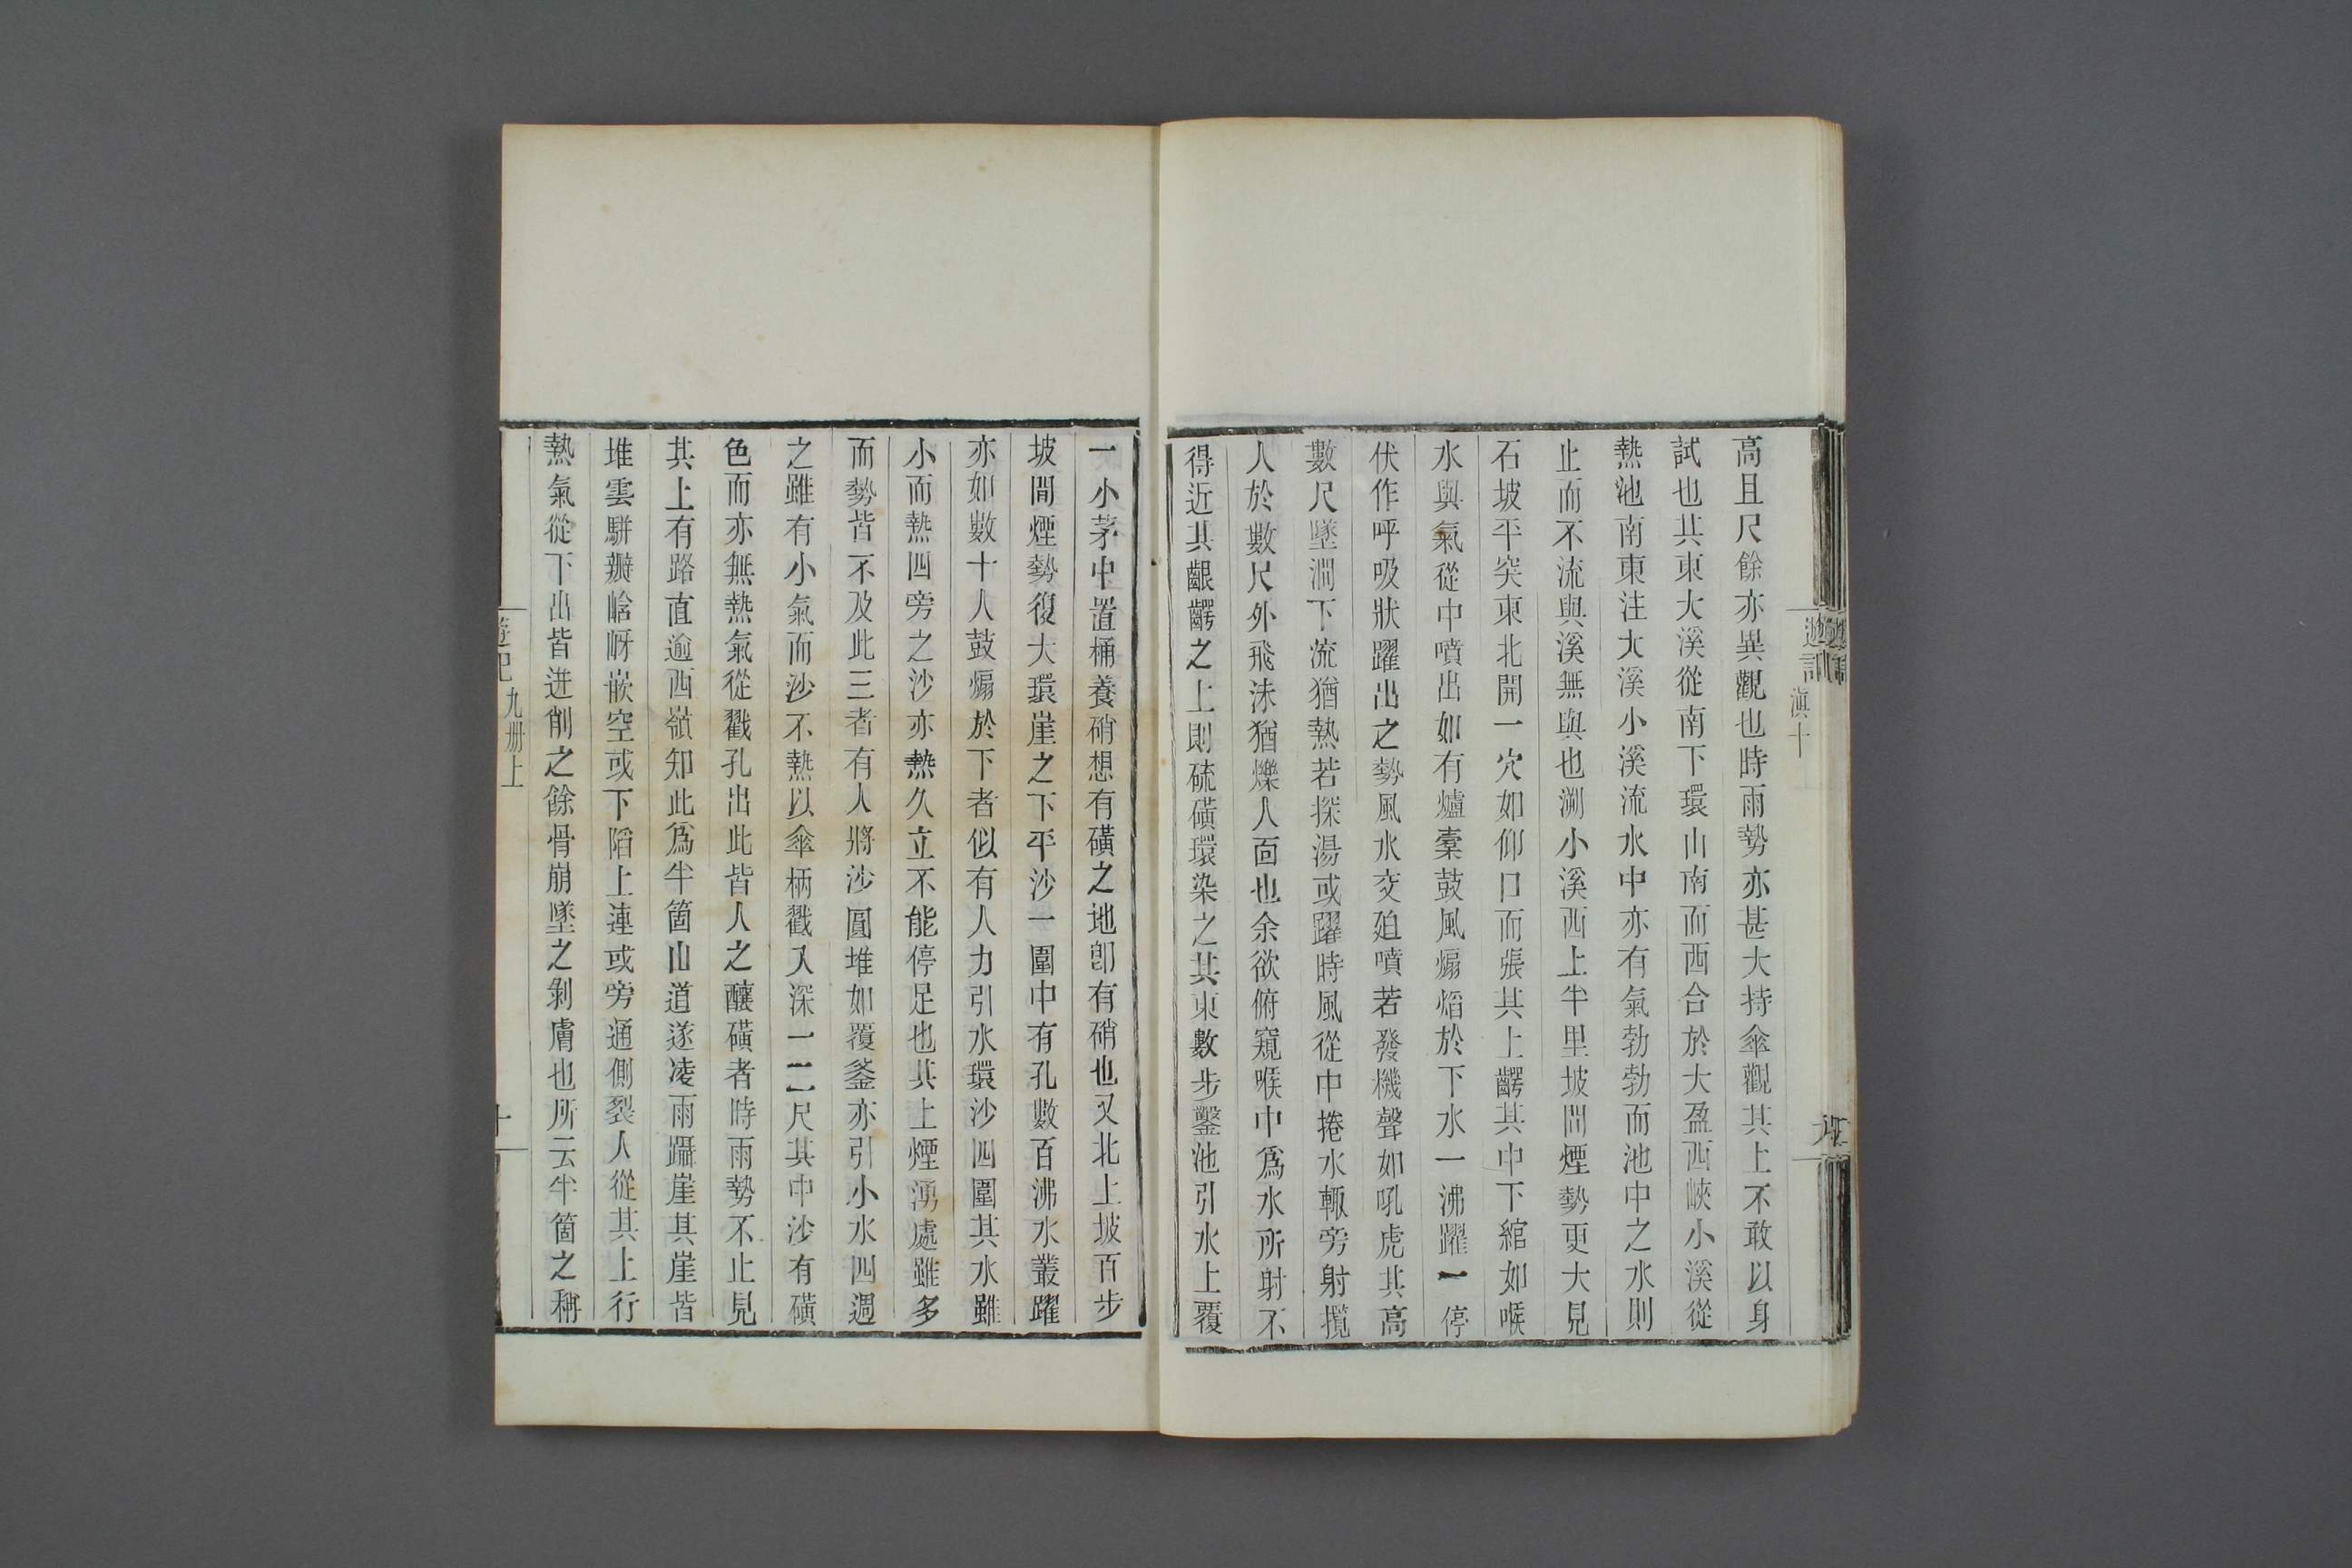 高且尺餘亦異觀也時雨勢亦甚大持傘觀其上不敢以身
試也其東大溪從南下環山南而西合於大盈西峽小溪從
熱池南東注大溪小溪流水中亦有氣勃勃而池中之水則
止而不流與溪無與也溯小溪西上半里坡間煙勢更大見
石坡平突東北開一穴如仰口而張其上齶其中下綰如喉
水與氣從中噴出如有爐橐鼓風煽焰於下水一沸躍一停
伏作呼吸狀躍出之勢風水交廹噴若發機聲如吼虎其高
數尺墜澗下流猶熱若探湯或躍時風從中捲水輒旁射攬
人於數尺外飛沬猶爍人面也余欲俯窺喉中爲水所射不
得近其齦齶之上則硫磺環染之其東數步鑿池引水上覆
一小茅中置桶養硝想有磺之地卽有硝也又北上坡百步
坡間煙勢復大環崖之下平沙一圍中有孔數百沸水叢躍
亦如數十人鼓煽於下者似有人力引水環沙四圍其水雖
小而熱四旁之沙亦熱久立不能停足也其上煙湧處雖多
而勢皆不及此三者有人將沙圓堆如覆釜亦引小水四週
之雖有小氣而沙不熱以傘柄戳入深一二尺其中沙有磺
色而亦無熱氣從戳孔出此皆人之釀磺者時雨勢不止見
其上有路直逾西嶺知此爲半箇山道遂凌雨躡崖其崖皆
堆雲駢瓣崆岈嵌空或下陷上連或旁通側裂人從其上行
熱氣從下出皆迸削之餘骨崩墜之剝膚也所云半箇之稱
遊記 九册上
十
遊記 滇十